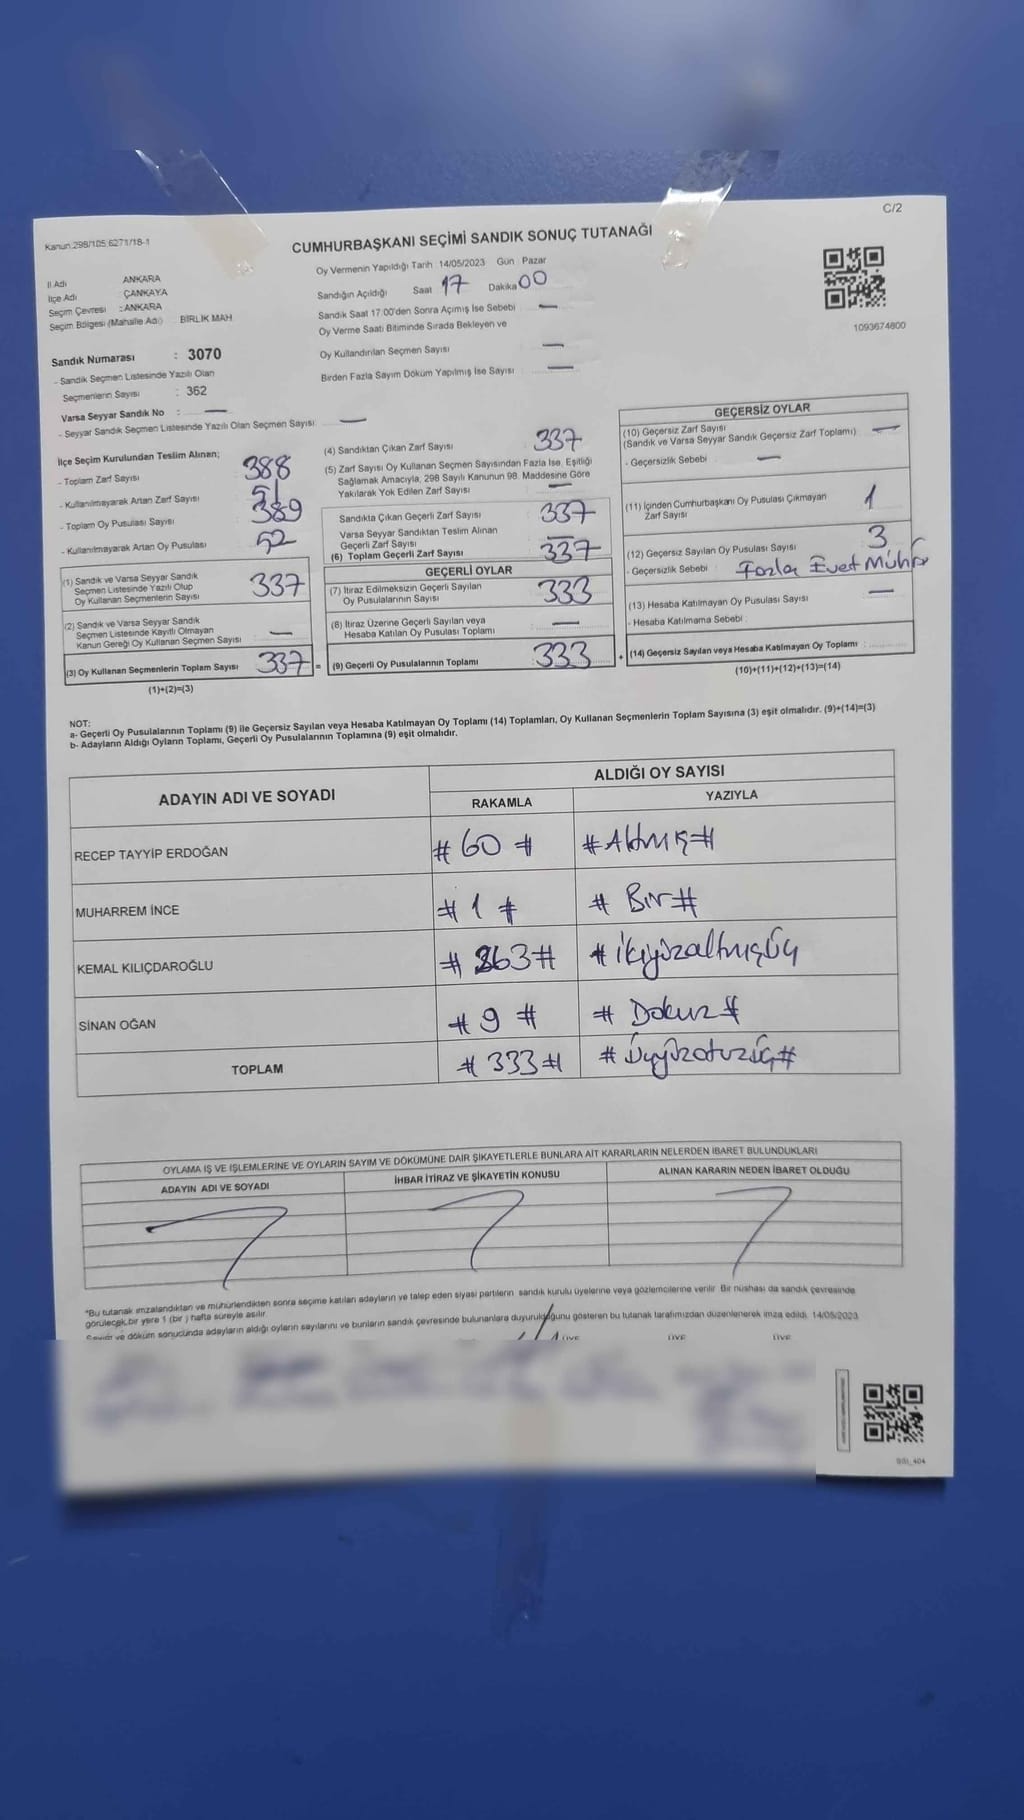 C/2
Kanun:298/105,6271/18-1
CUMHURBAŞKANI SEÇİMİ SANDIK SONUÇ TUTANAĞI
İl Adı ANKARA
İlçe Adı : ÇANKAYA
Seçim Çevresi : ANKARA
Seçim Bölgesi (Mahalle Adı) : BİRLİK MAH
Sandık Numarası : 3070
- Sandık Seçmen Listesinde Yazılı Olan
Seçmenlerin Sayısı : 362
Varsa Seyyar Sandık No : —
- Seyyar Sandık Seçmen Listesinde Yazılı Olan Seçmen Sayısı: —
Oy Vermenin Yapıldığı Tarih : 14/05/2023 Gün : Pazar
Sandığın Açıldığı Saat 17 Dakika 00
Sandık Saat 17.00'den Sonra Açımış İse Sebebi —
Oy Verme Saati Bitiminde Sırada Bekleyen ve
Oy Kullandırılan Seçmen Sayısı —
Birden Fazla Sayım Döküm Yapılmış İse Sayısı —
1093674800
İlçe Seçim Kurulundan Teslim Alınan;
- Toplam Zarf Sayısı : 388
- Kullanılmayarak Artan Zarf Sayısı : 51
- Toplam Oy Pusulası Sayısı : 389
- Kullanılmayarak Artan Oy Pusulası : 52
(1) Sandık ve Varsa Seyyar Sandık
Seçmen Listesinde Yazılı Olup
Oy Kullanan Seçmenlerin Sayısı 337
(2) Sandık ve Varsa Seyyar Sandık
Seçmen Listesinde Kayıtlı Olmayan
Kanun Gereği Oy Kullanan Seçmen Sayısı —
(3) Oy Kullanan Seçmenlerin Toplam Sayısı 337 =
(1)+(2)=(3)
(4) Sandıktan Çıkan Zarf Sayısı 337
(5) Zarf Sayısı Oy Kullanan Seçmen Sayısından Fazla İse, Eşitliği
Sağlamak Amacıyla, 298 Sayılı Kanunun 98. Maddesine Göre
Yakılarak Yok Edilen Zarf Sayısı —
Sandıkta Çıkan Geçerli Zarf Sayısı : 337
Varsa Seyyar Sandıktan Teslim Alınan
Geçerli Zarf Sayısı : —
(6) Toplam Geçerli Zarf Sayısı : 337
GEÇERLİ OYLAR
(7) İtiraz Edilmeksizin Geçerli Sayılan
Oy Pusulalarının Sayısı : 333
(8) İtiraz Üzerine Geçerli Sayılan veya
Hesaba Katılan Oy Pusulası Toplamı : —
(9) Geçerli Oy Pusulalarının Toplamı : 333 +
GEÇERSİZ OYLAR
(10) Geçersiz Zarf Sayısı
(Sandık ve Varsa Seyyar Sandık Geçersiz Zarf Toplamı) —
- Geçersizlik Sebebi : —
(11) İçinden Cumhurbaşkanı Oy Pusulası Çıkmayan
Zarf Sayısı 1
(12) Geçersiz Sayılan Oy Pusulası Sayısı : 3
- Geçersizlik Sebebi : Fazla Evet Mührü
(13) Hesaba Katılmayan Oy Pusulası Sayısı —
- Hesaba Katılmama Sebebi :
(14) Geçersiz Sayılan veya Hesaba Katılmayan Oy Toplamı :
(10)+(11)+(12)+(13)=(14)
NOT:
a- Geçerli Oy Pusulalarının Toplamı (9) ile Geçersiz Sayılan veya Hesaba Katılmayan Oy Toplamı (14) Toplamları, Oy Kullanan Seçmenlerin Toplam Sayısına (3) eşit olmalıdır. (9)+(14)=(3)
b- Adayların Aldığı Oyların Toplamı, Geçerli Oy Pusulalarının Toplamına (9) eşit olmalıdır.
ADAYIN ADI VE SOYADI
ALDIĞI OY SAYISI
RAKAMLA YAZIYLA
RECEP TAYYİP ERDOĞAN # 60 # #Altmış#
MUHARREM İNCE # 1 # # Bir#
KEMAL KILIÇDAROĞLU # 263# #ikiyüzaltmışüç
SİNAN OĞAN # 9 # # Dokuz #
TOPLAM # 333# # Üçyüzotuzüç#
OYLAMA İŞ VE İŞLEMLERİNE VE OYLARIN SAYIM VE DÖKÜMÜNE DAİR ŞİKAYETLERLE BUNLARA AİT KARARLARIN NELERDEN İBARET BULUNDUKLARI
ADAYIN ADI VE SOYADI İHBAR İTİRAZ VE ŞİKAYETİN KONUSU ALINAN KARARIN NEDEN İBARET OLDUĞU
*Bu tutanak imzalandıktan ve mühürlendikten sonra seçime katılan adayların ve talep eden siyasi partilerin sandık kurulu üyelerine veya gözlemcilerine verilir. Bir nüshası da sandık çevresinde
görülecek bir yere 1 (bir ) hafta süreyle asılır.
Sayım ve döküm sonucunda adayların aldığı oyların sayılarını ve bunların sandık çevresinde bulunanlara duyurulduğunu gösteren bu tutanak tarafımızdan düzenlenerek imza edildi. 14/05/2023
ÜYE ÜYE ÜYE